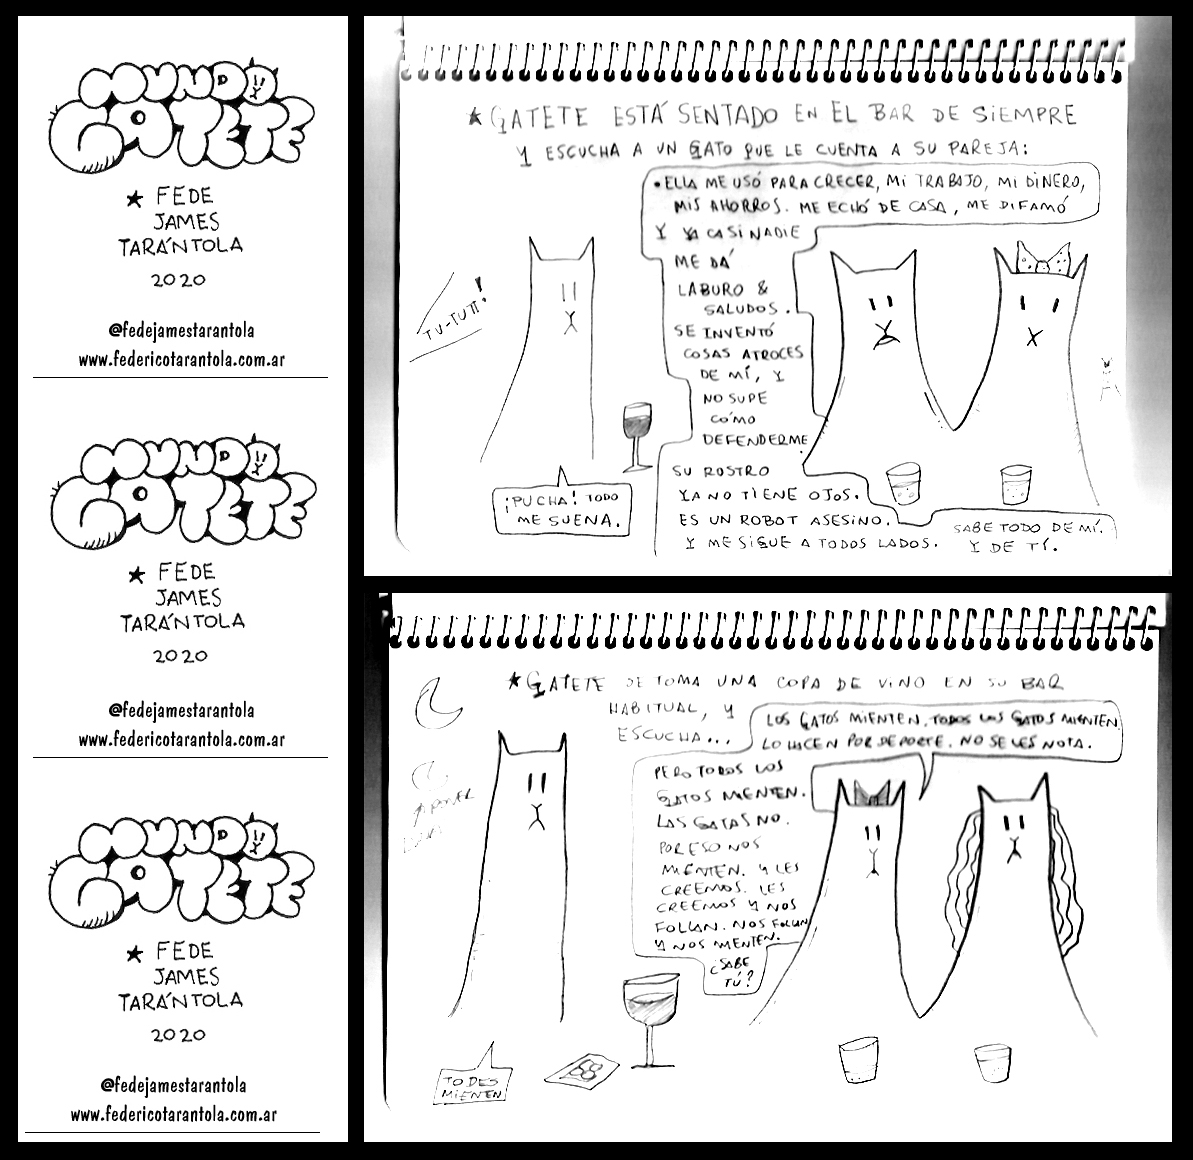 MUNDO
GATETE
★ FEDE
JAMES
TARÁNTOLA
2020
@fedejamestarantola
www.federicotarantola.com.ar
MUNDO
GATETE
★ FEDE
JAMES
TARÁNTOLA
2020
@fedejamestarantola
www.federicotarantola.com.ar
MUNDO
GATETE
★ FEDE
JAMES
TARÁNTOLA
2020
@fedejamestarantola
www.federicotarantola.com.ar
★ GATETE ESTÁ SENTADO EN EL BAR DE SIEMPRE
Y ESCUCHA A UN GATO QUE LE CUENTA A SU PAREJA:
• ELLA ME USÓ PARA CRECER, MI TRABAJO, MI DINERO,
MIS AHORROS. ME ECHÓ DE CASA, ME DIFAMÓ
Y YA CASI NADIE
ME DÁ
LABURO &
SALUDOS.
SE INVENTÓ
COSAS ATROCES
DE MÍ, Y
NO SUPE
CÓMO
DEFENDERME
SU ROSTRO
YA NO TIENE OJOS.
ES UN ROBOT ASESINO.
Y ME SIGUE A TODOS LADOS.
SABE TODO DE MÍ.
Y DE TÍ.
TU-TUTT!
¡PUCHA! TODO
ME SUENA.
★ GATETE SE TOMA UNA COPA DE VINO EN SU BAR
HABITUAL, Y
ESCUCHA...
LOS GATOS MIENTEN. TODOS LOS GATOS MIENTEN
LO HACEN POR DEPORTE. NO SE LES NOTA.
PERO TODOS LOS
GATOS MIENTEN.
LAS GATAS NO.
POR ESO NOS
MIENTEN. Y LES
CREEMOS. LES
CREEMOS Y NOS
FOLLAN. NOS FOLLAN
Y NOS MIENTEN.
¿SABE
TÚ?
TODES
MIENTEN